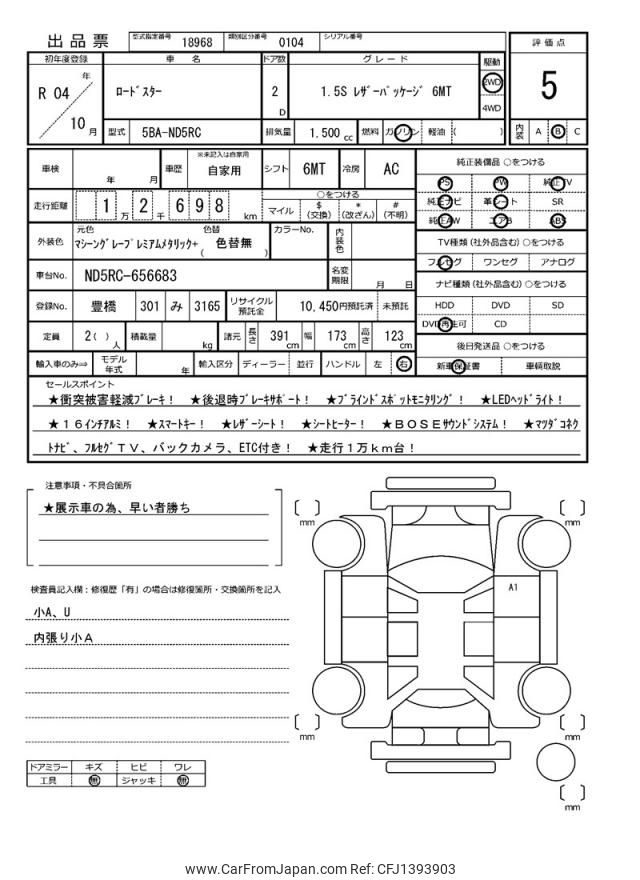 出品票 型式指定番号 18968 類別区分番号 0104 シリアル番号
初年度登録 車名 ドア数 グレード 駆動 評価点
R 04 年 10 月 ﾛｰﾄﾞｽﾀｰ 2 D 1.5S ﾚｻﾞｰﾊﾟｯｹｰｼﾞ 6MT 2WD 4WD 5
型式 5BA-ND5RC 排気量 1.500 cc 燃料 ガソリン 軽油 ( ) 内装 A B C
車検 年 月 車歴 ※未記入は自家用 自家用 シフト 6MT 冷房 AC 純正装備品 ○をつける
PS PW 純正TV
走行距離 1 万 2 千 6 9 8 km ○をつける マイル $ (交換) * (改ざん) # (不明) 純正ナビ 革シート SR
純正AW エアB ABS
外装色 元色 色替 ﾏｼｰﾝｸﾞﾚｰﾌﾟﾚﾐｱﾑﾒﾀﾘｯｸ+ ( 色替無 ) カラーNo. 内装色 TV種類 (社外品含む) ○をつける
フルセグ ワンセグ アナログ
車台No. ND5RC-656683 名変期限 月 日 ナビ種類 (社外品含む) ○をつける
登録No. 豊橋 301 み 3165 リサイクル預託金 10,450円預託済 未預託 HDD DVD SD
DVD再生可 CD
定員 2( ) 人 積載量 kg 諸元 長さ 391 cm 幅 173 cm 高さ 123 cm 後日発送品 ○をつける
輸入車のみ⇒ モデル年式 年 輸入区分 ディーラー 並行 ハンドル 左 右 新車保証書 車輌取説
セールスポイント
★衝突被害軽減ﾌﾞﾚｰｷ！ ★後退時ﾌﾞﾚｰｷｻﾎﾟｰﾄ！ ★ﾌﾞﾗｲﾝﾄﾞｽﾎﾟｯﾄﾓﾆﾀﾘﾝｸﾞ！ ★LEDﾍｯﾄﾞﾗｲﾄ！
★１６ｲﾝﾁｱﾙﾐ！ ★ｽﾏｰﾄｷｰ！ ★ﾚｻﾞｰｼｰﾄ！ ★ｼｰﾄﾋｰﾀｰ！ ★ＢＯＳＥｻｳﾝﾄﾞｼｽﾃﾑ！ ★ﾏﾂﾀﾞｺﾈｸ
ﾄﾅﾋﾞ、ﾌﾙｾｸﾞＴＶ、バックカメラ、ETC付き！ ★走行１万ｋｍ台！
注意事項・不具合箇所
★展示車の為、早い者勝ち
mm mm
検査員記入欄：修復歴「有」の場合は修復箇所・交換箇所を記入
A1
小A、U
内張り小Ａ
mm mm
ドアミラー キズ ヒビ ワレ
工具 無 ジャッキ 無
mm
www.CarFromJapan.com Ref: CFJ1393903